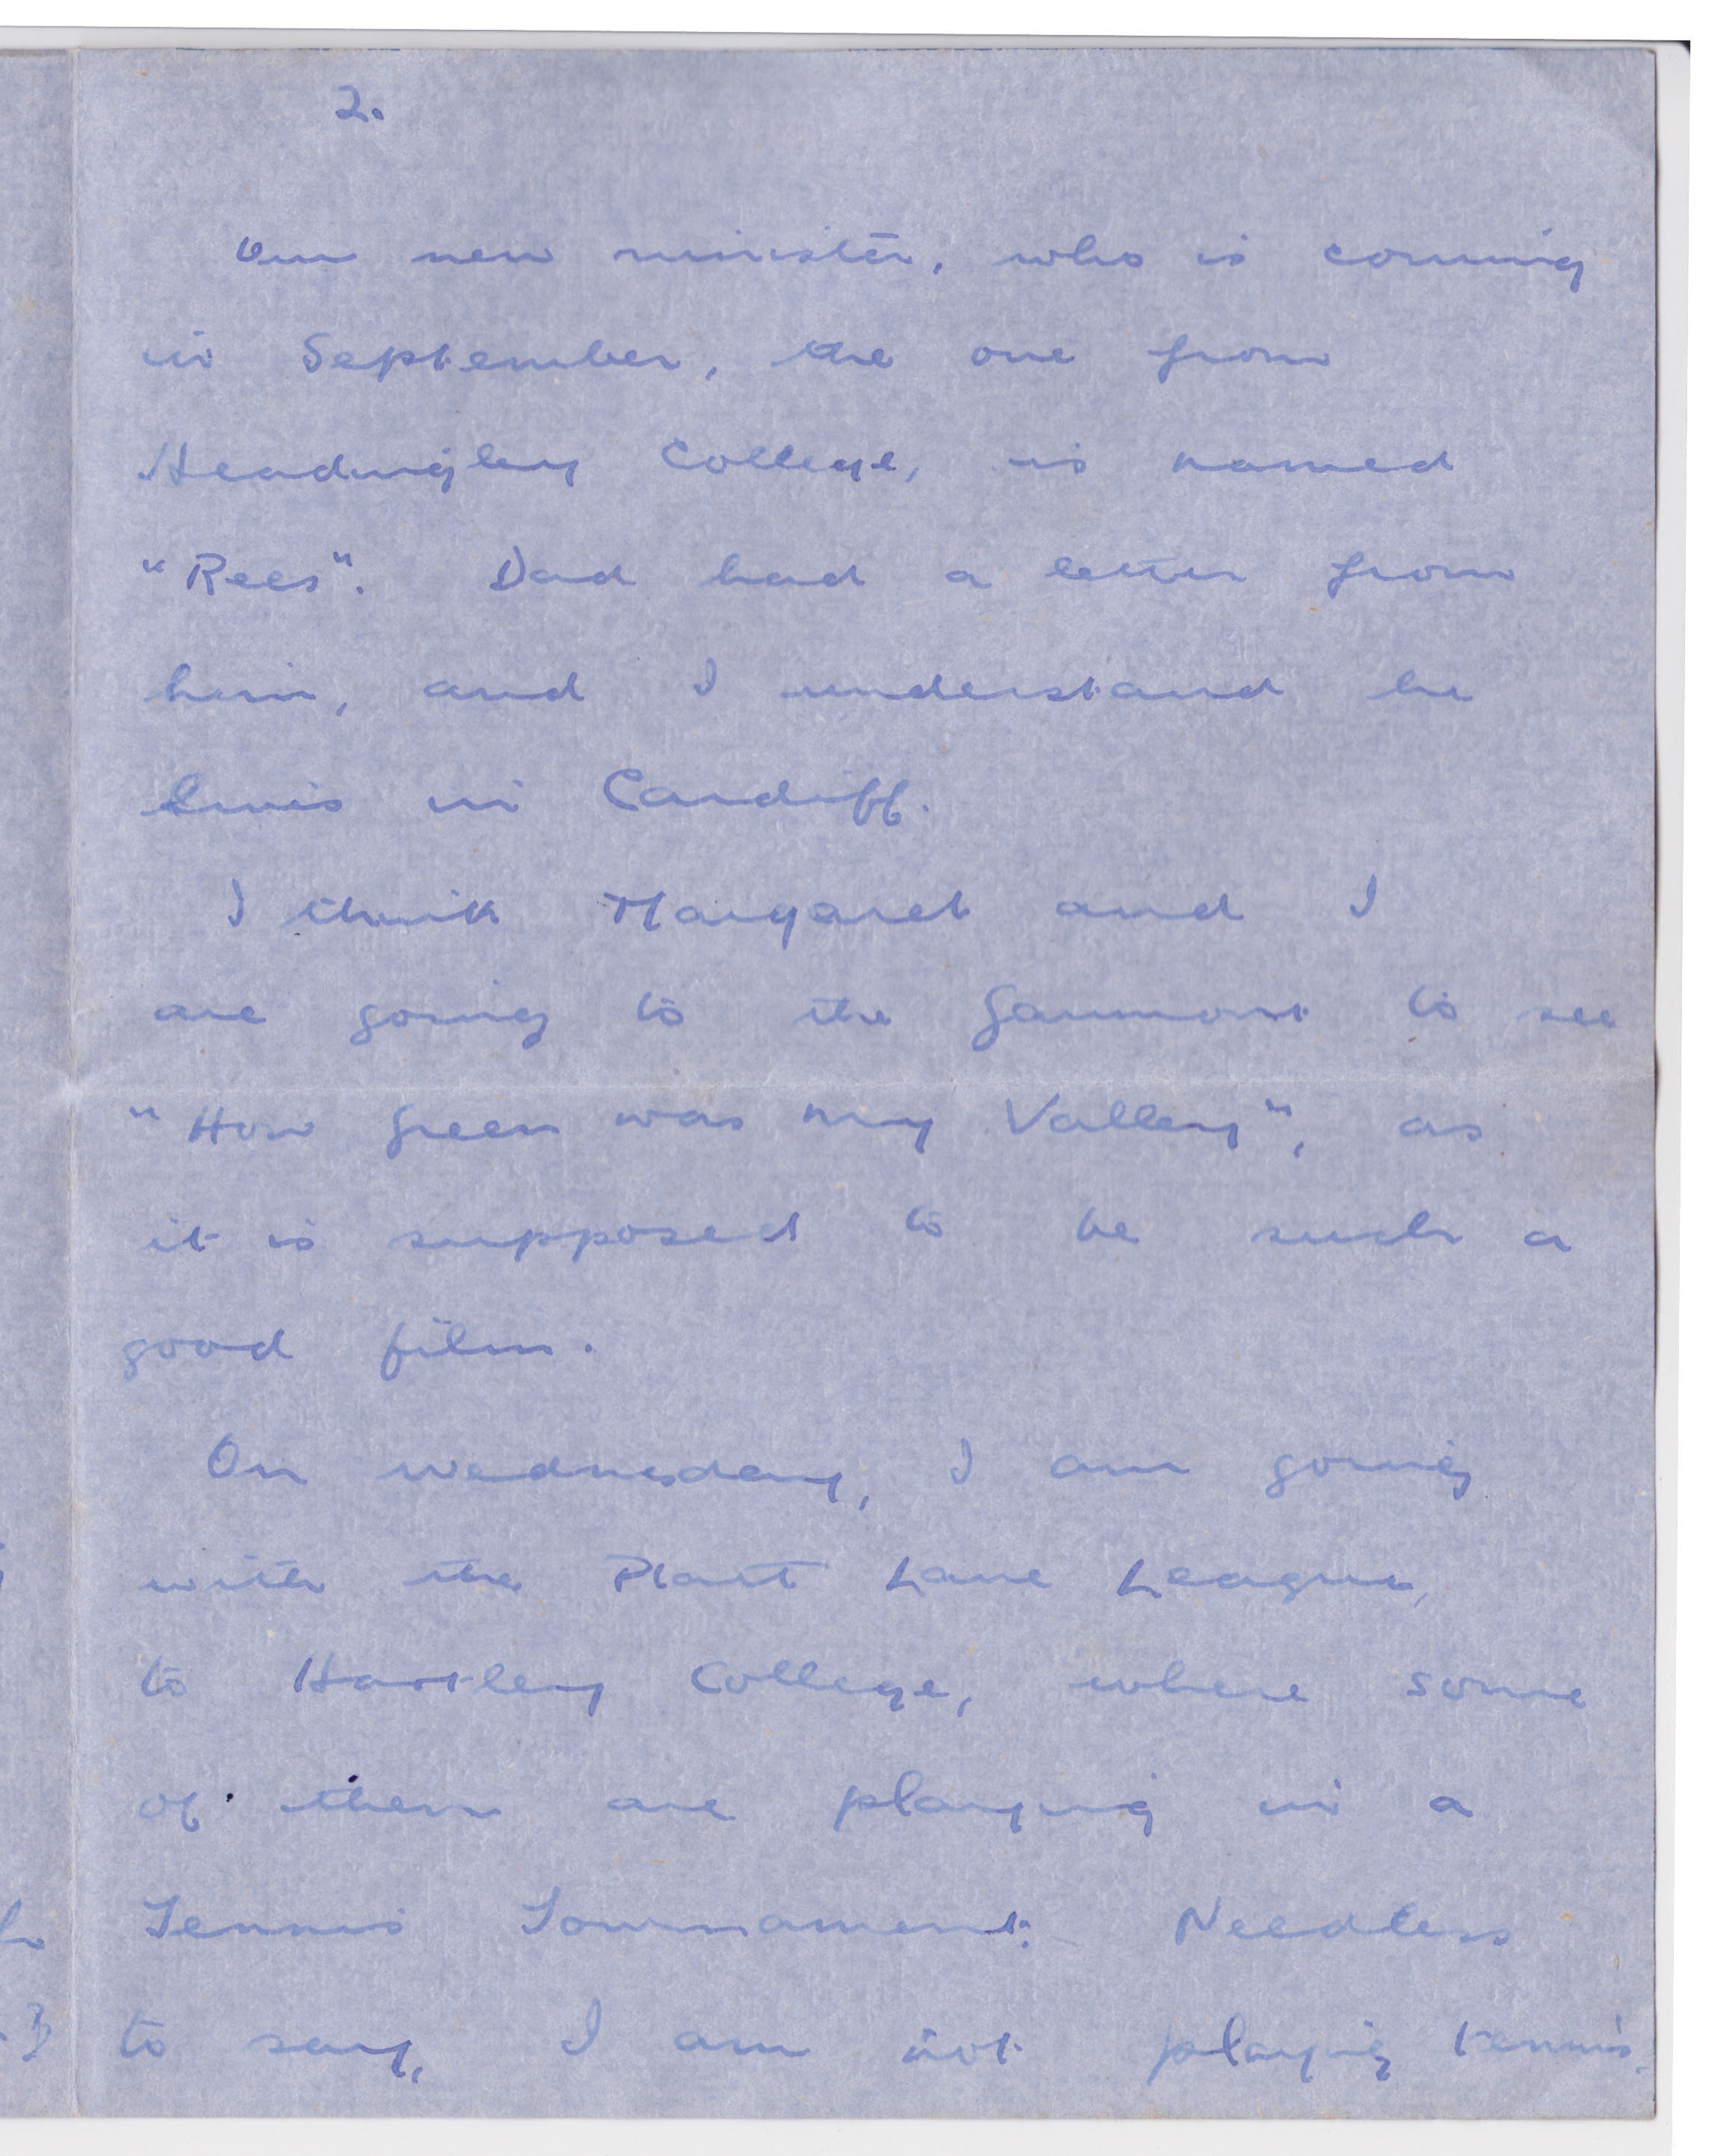 2.
Our new minister, who is coming
in September, the one from
Headingley College, is named
"Rees". Dad had a letter from
him, and I understand he
lives in Cardiff.
I think Margaret and I
are going to the Gaumont to see
"How Green was my Valley", as
it is supposed to be such a
good film.
On Wednesday, I am going
with the Platt Lane League,
to Hartley College, where some
of them are playing in a
Tennis Tournament. Needless
to say, I am not playing tennis.